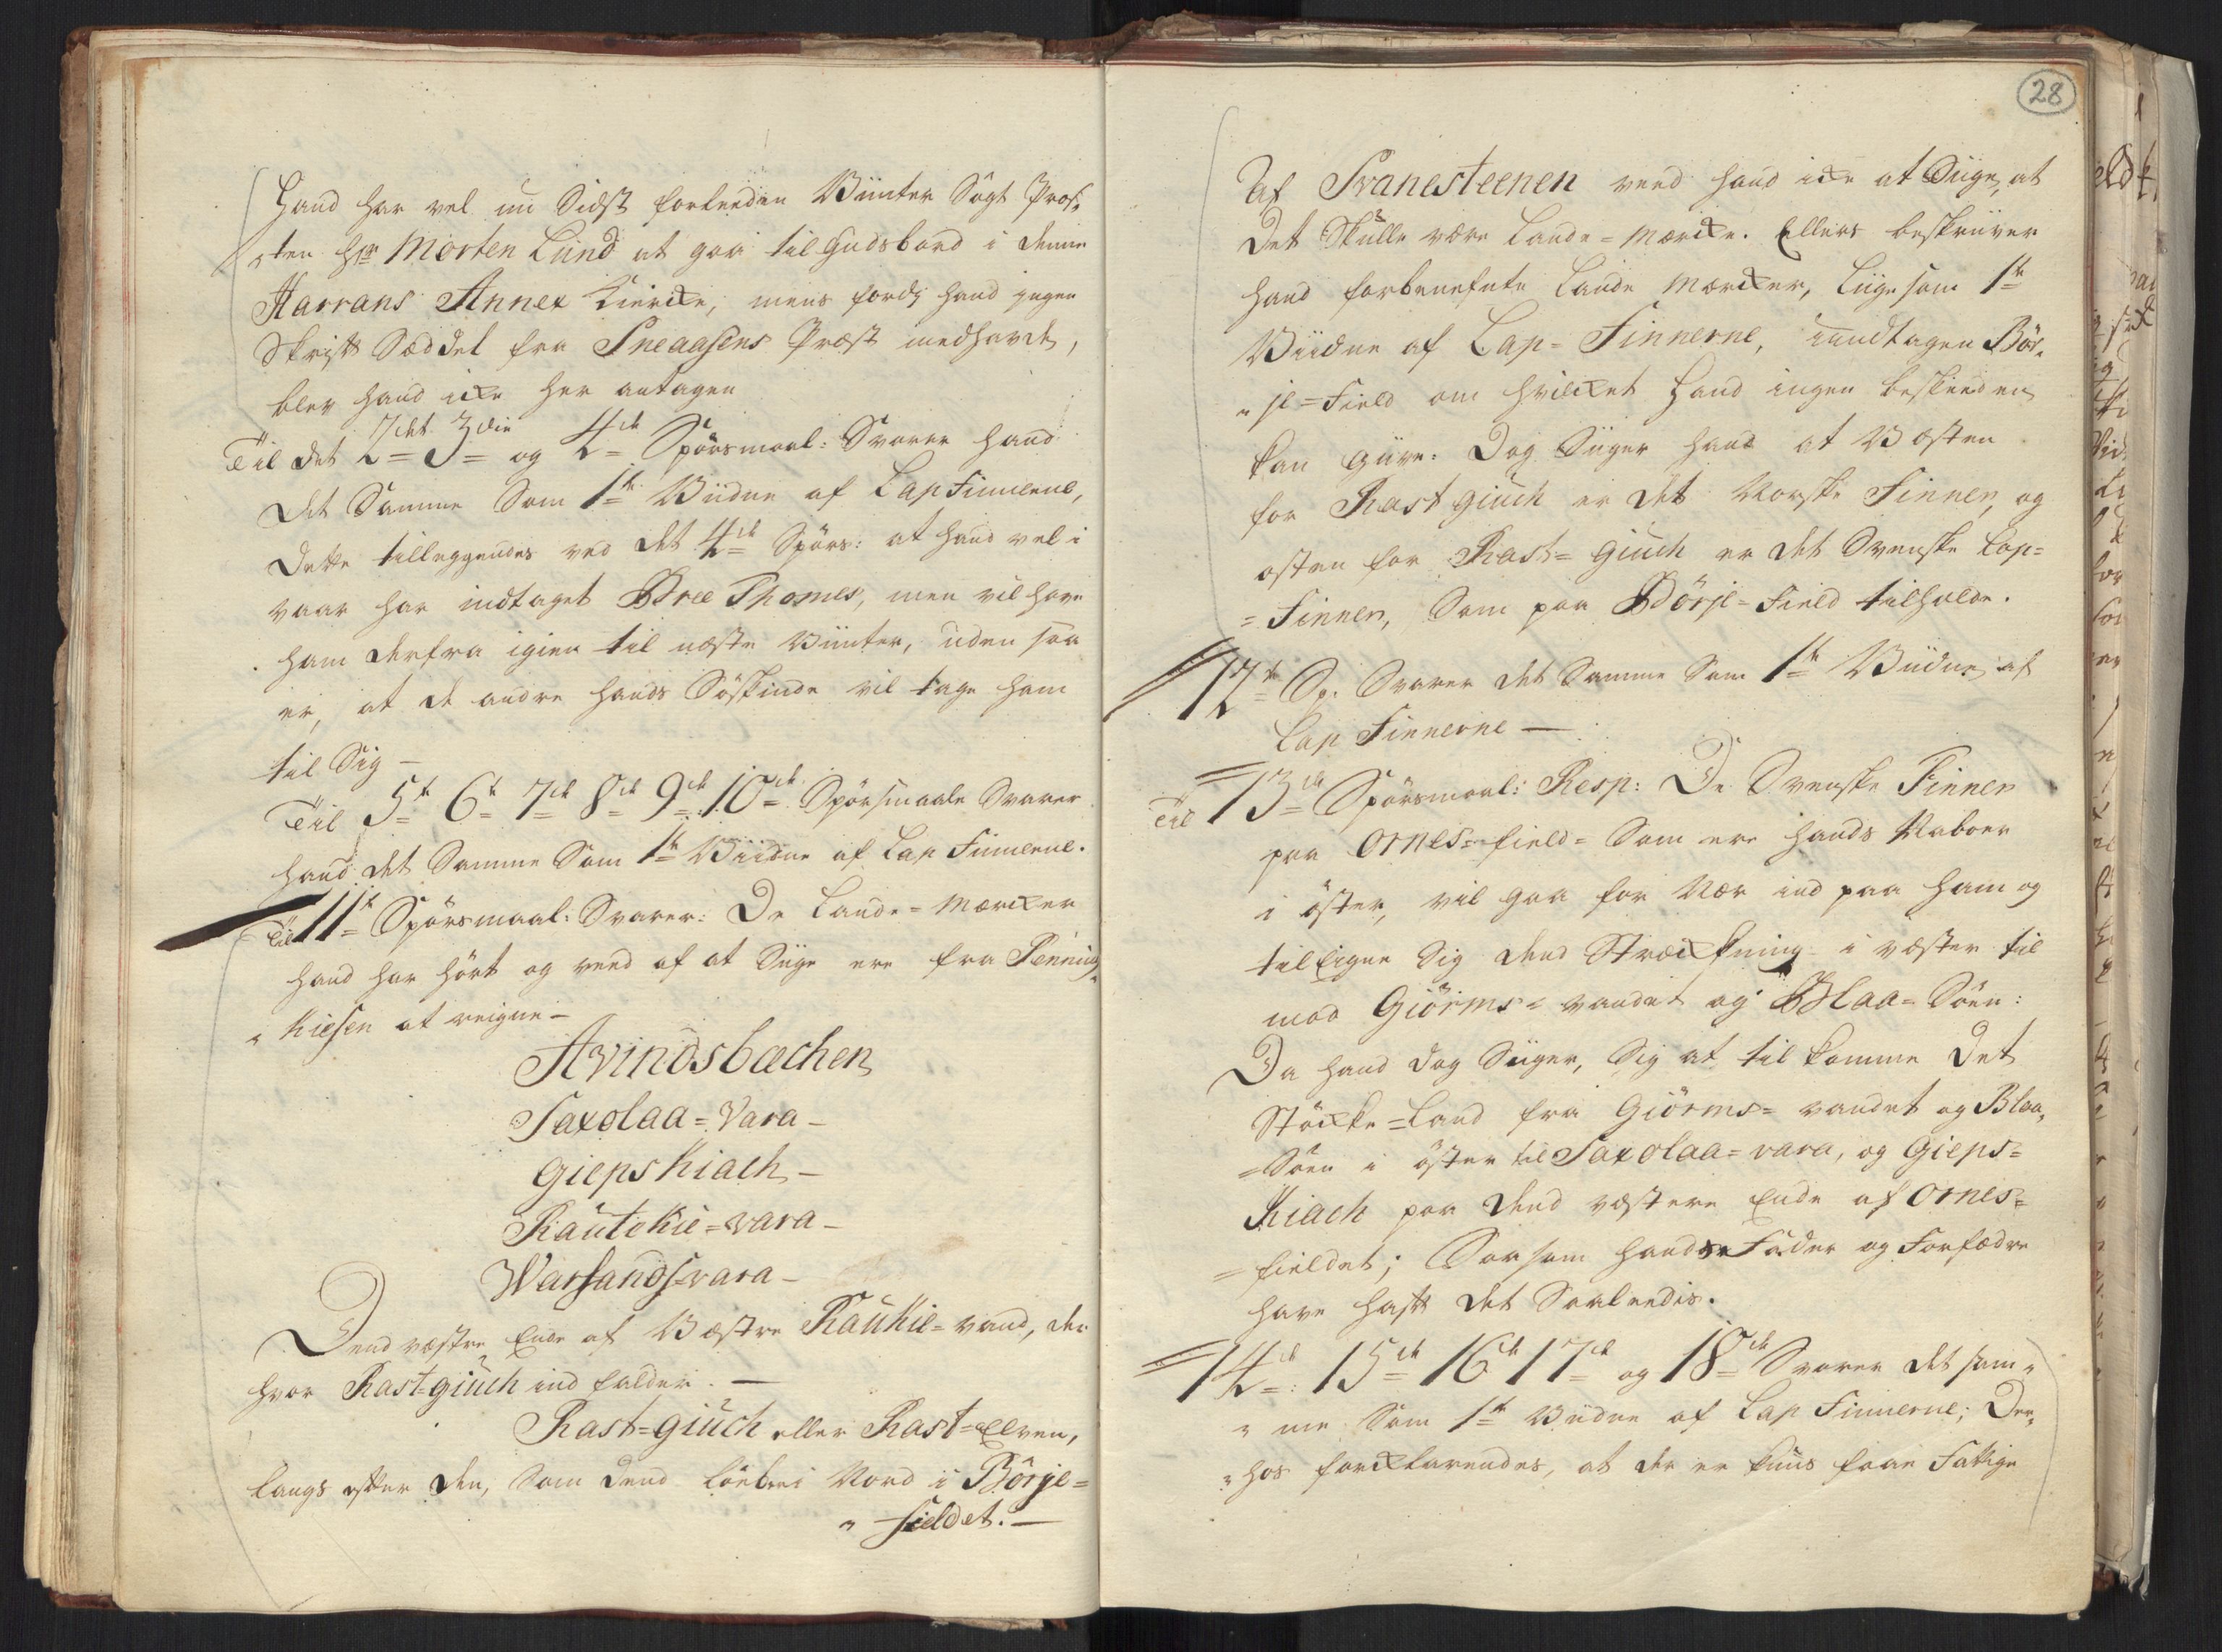 Hand har vel nu Sidst forleeden Vinter Søgt Præs„
„ten Hr Morten Lund at gaa til Gudsbord i denne
Harrans Annex Kiercke, mens fordj hand jngen
Skriftt Sæddel fra Sneaasens Præst medhavde,
blev hand icke her antagen
Til det 2det 3die og 4de Spörsmaal: Svarer hand
det Samme Som 1te Viidne af Lap Finnerne,
Dette tilleggendes ved det 4de Spörs: at hand vel i
vaar har indtaget Bree Thomes, men vil have
ham derfra igien til næste Vinter, uden saa
er, at de andre hands Södskinde vil tage ham
til Sig –
Til 5te 6te 7de 8de 9de 10de Spörsmaale Svarer
hand det Samme Som 1te Viidne af Lap Finnerne.
Til 11te Spörsmaal: Svarer: De Lande=Mærcker
hand har hört og veed af at Siige ere fra Rennis„
„Kiesen at reigne –
Avindsbæchen
Saxolaa=Vara –
Gieps Kiach –
Rautekie=vara –
Warsands=vara –
Dend væstre Ende af Væstre Raukie=vand, der
hvor Rast=giuch ind falder. –
Rast=giuch eller Rast=Elven,
langs efter den, Som dend löber i Nord i Börje=
„ fieldet. –
28
Af Svanesteenen veed hand icke at Siige, at
det Skulle være Lande=Mærcke. Ellers beskriver
hand forbenefnte Lande Mærcker, Liigesom 1te
Viidne af Lap=Finnerne, undtagen Bör„
„je=Field om hvilcket Hand ingen beskeeden
kan giive. Dog Siiger hand at Væsten
for Rast giuch er det Norske Finner, og
østen for Rast=giuch er det Svenske Lap=
=Finner, Som paa Börje=Field tilholde.
12te Sp. Svarer det Samme Som 1te Viidne af
Lap Finnerne –
Til 13de Spörsmaal: Resp: De Svenske Finner
paa Ornes=field= Som ere hands Naboer
i öster, vil gaa for Nær ind paa ham og
tilEigne Sig dend Stræckning i væster til
mod Giörms=vandet og Blaa=Söen:
Da hand dog Siiger, Sig at til komme det
Stöcke=Land fra Giörms=vandet og Blaa„
=Söen i öster til Saxolaa=vara, og Gieps=
Kiach paa dend væstere Ende af Ornes=
=fieldet; Saasom hands Fader og Forfædre
have haft det Saaleedis.
14de: 15de 16de 17de og 18de Svarer det sam„
„me Som 1te Viidne af Lap Finnerne; Der„
„hos forcklarendes, at der er kuns faae Fattige